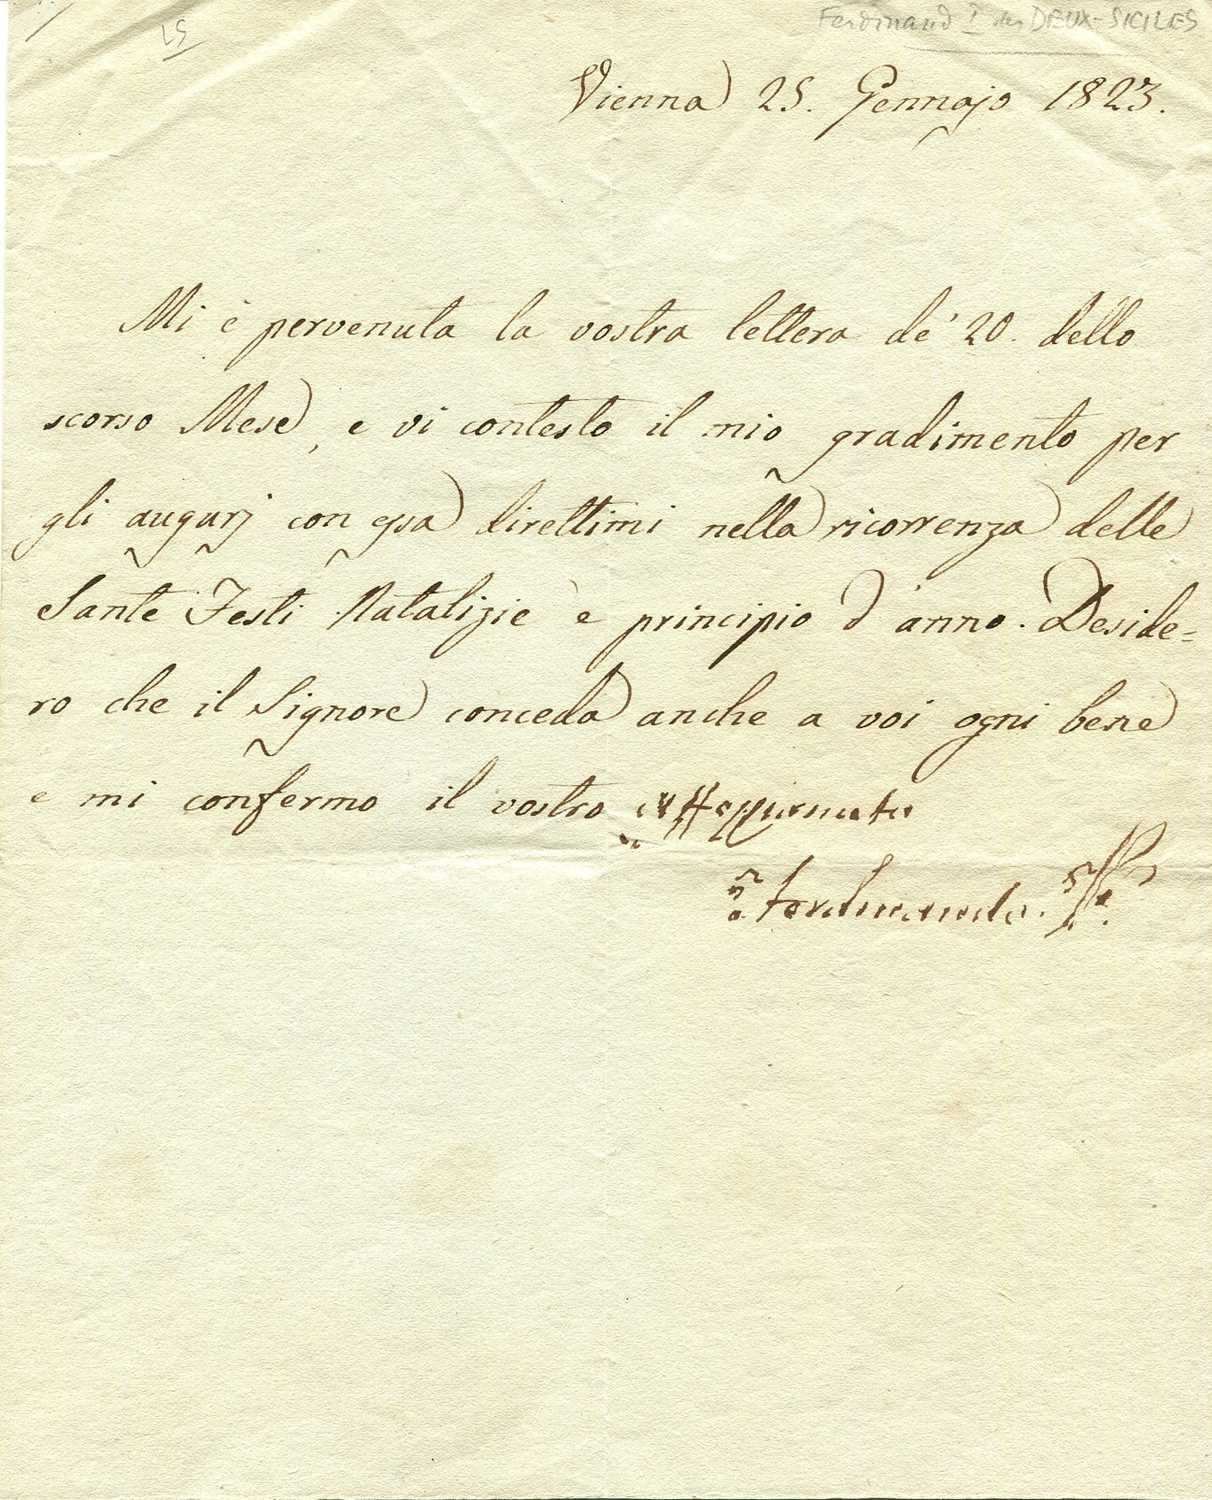 LS
Ferdinand I des DEUX-SICILES
Vienna 25. Gennajo 1823.
Mi è pervenuta la vostra lettera de' 20. dello
scorso Mese, e vi contesto il mio gradimento per
gli augurj con essa direttimi nella ricorrenza delle
Sante Festi Natalizie e principio d'anno. Deside=
ro che il Signore conceda anche a voi ogni bene
e mi confermo il vostro affezzionato
Ferdinando